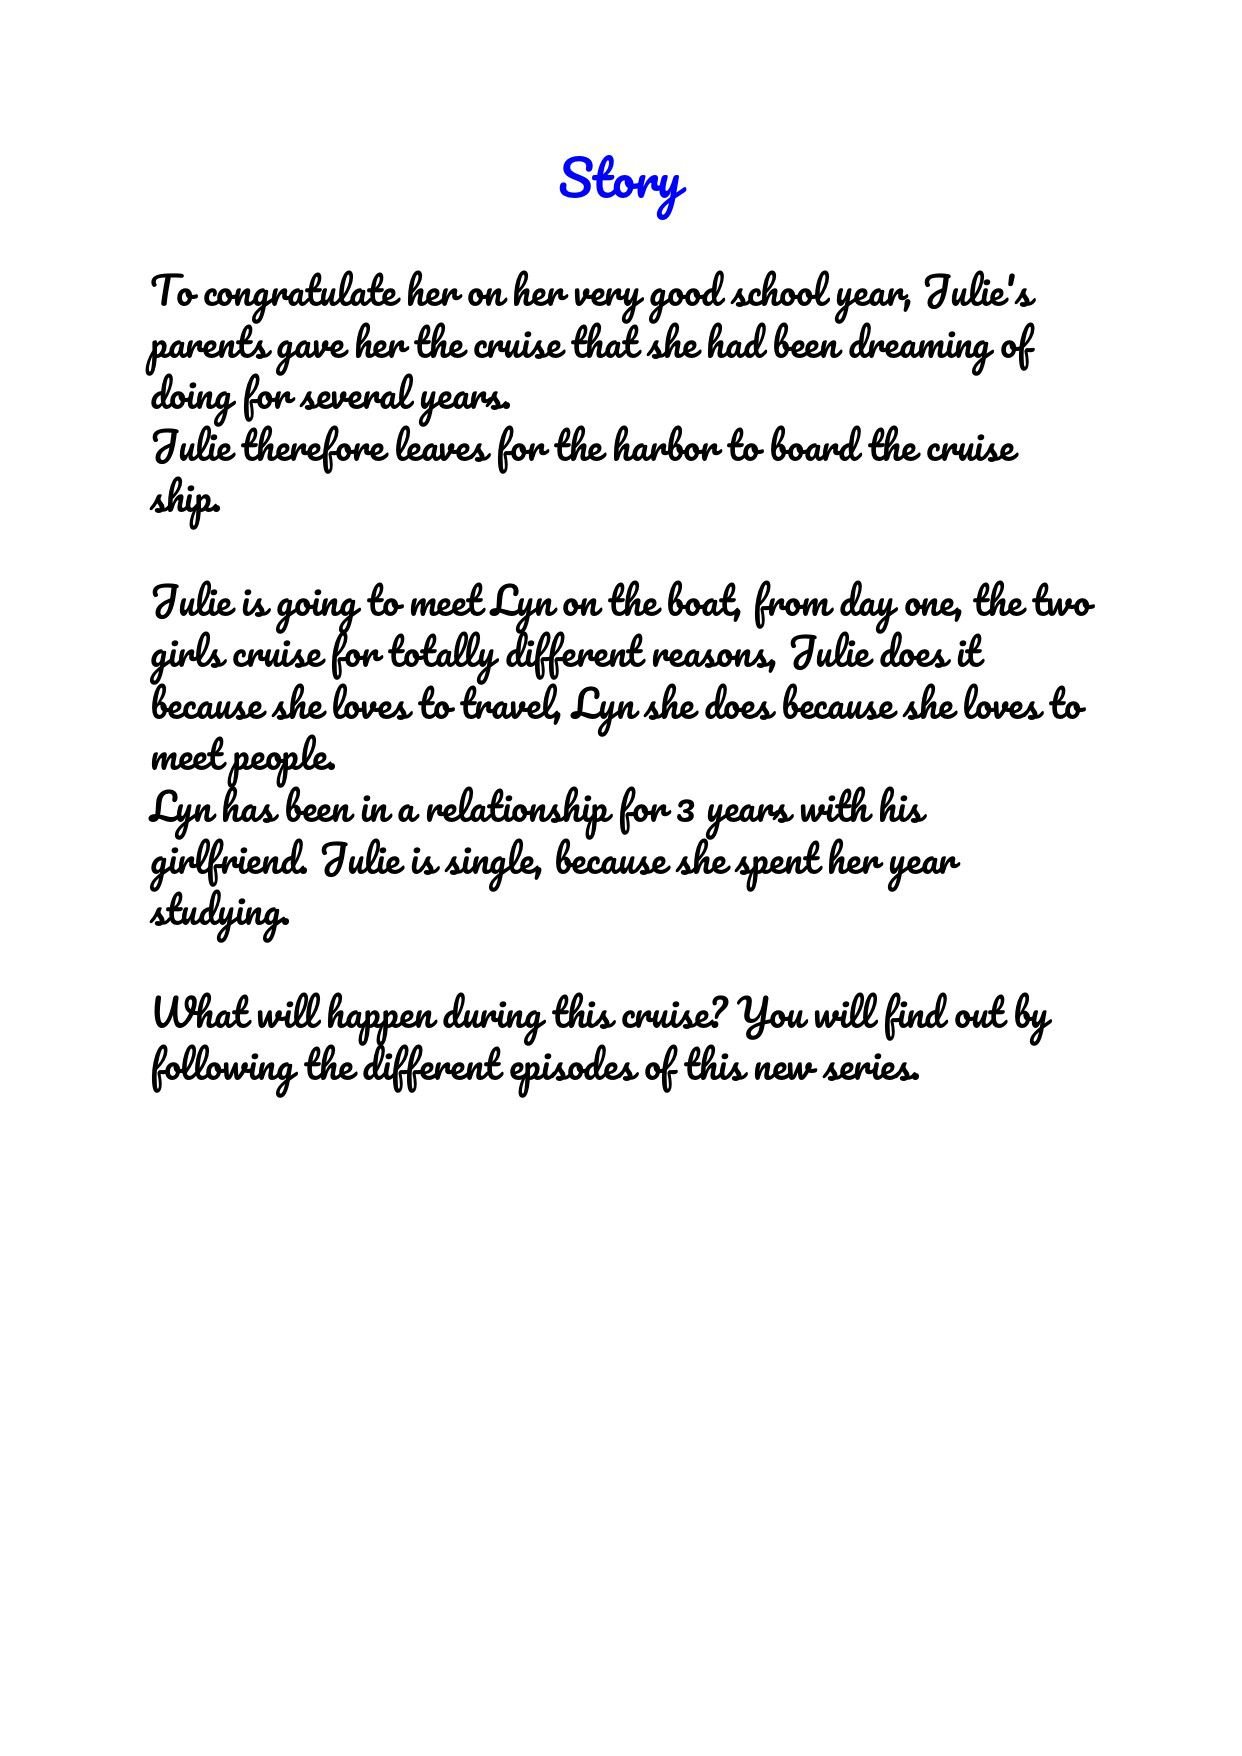 Story
To congratulate her on her very good school year, Julie's
parents gave her the cruise that she had been dreaming of
doing for several years.
Julie therefore leaves for the harbor to board the cruise
ship.
Julie is going to meet Lyn on the boat, from day one, the two
girls cruise for totally different reasons, Julie does it
because she loves to travel, Lyn she does because she loves to
meet people.
Lyn has been in a relationship for 3 years with his
girlfriend. Julie is single, because she spent her year
studying.
What will happen during this cruise? You will find out by
following the different episodes of this new series.